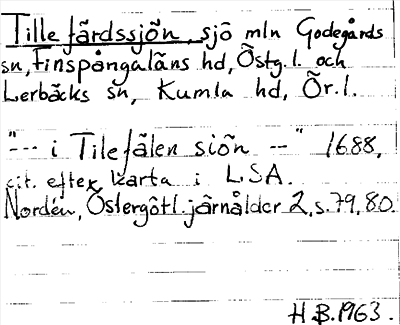 Tillefärdssjön, sjö mln Godegårds
sn, Finspångaläns hd, Östg.l. och
Lerbäcks sn, Kumla hd, Ör.l.
"--- i Tilefälen siön --" 1688,
cit. efter karta i LSA.
Nordén, Östergötl. järnålder 2, s. 79, 80.
H.B. 1963.